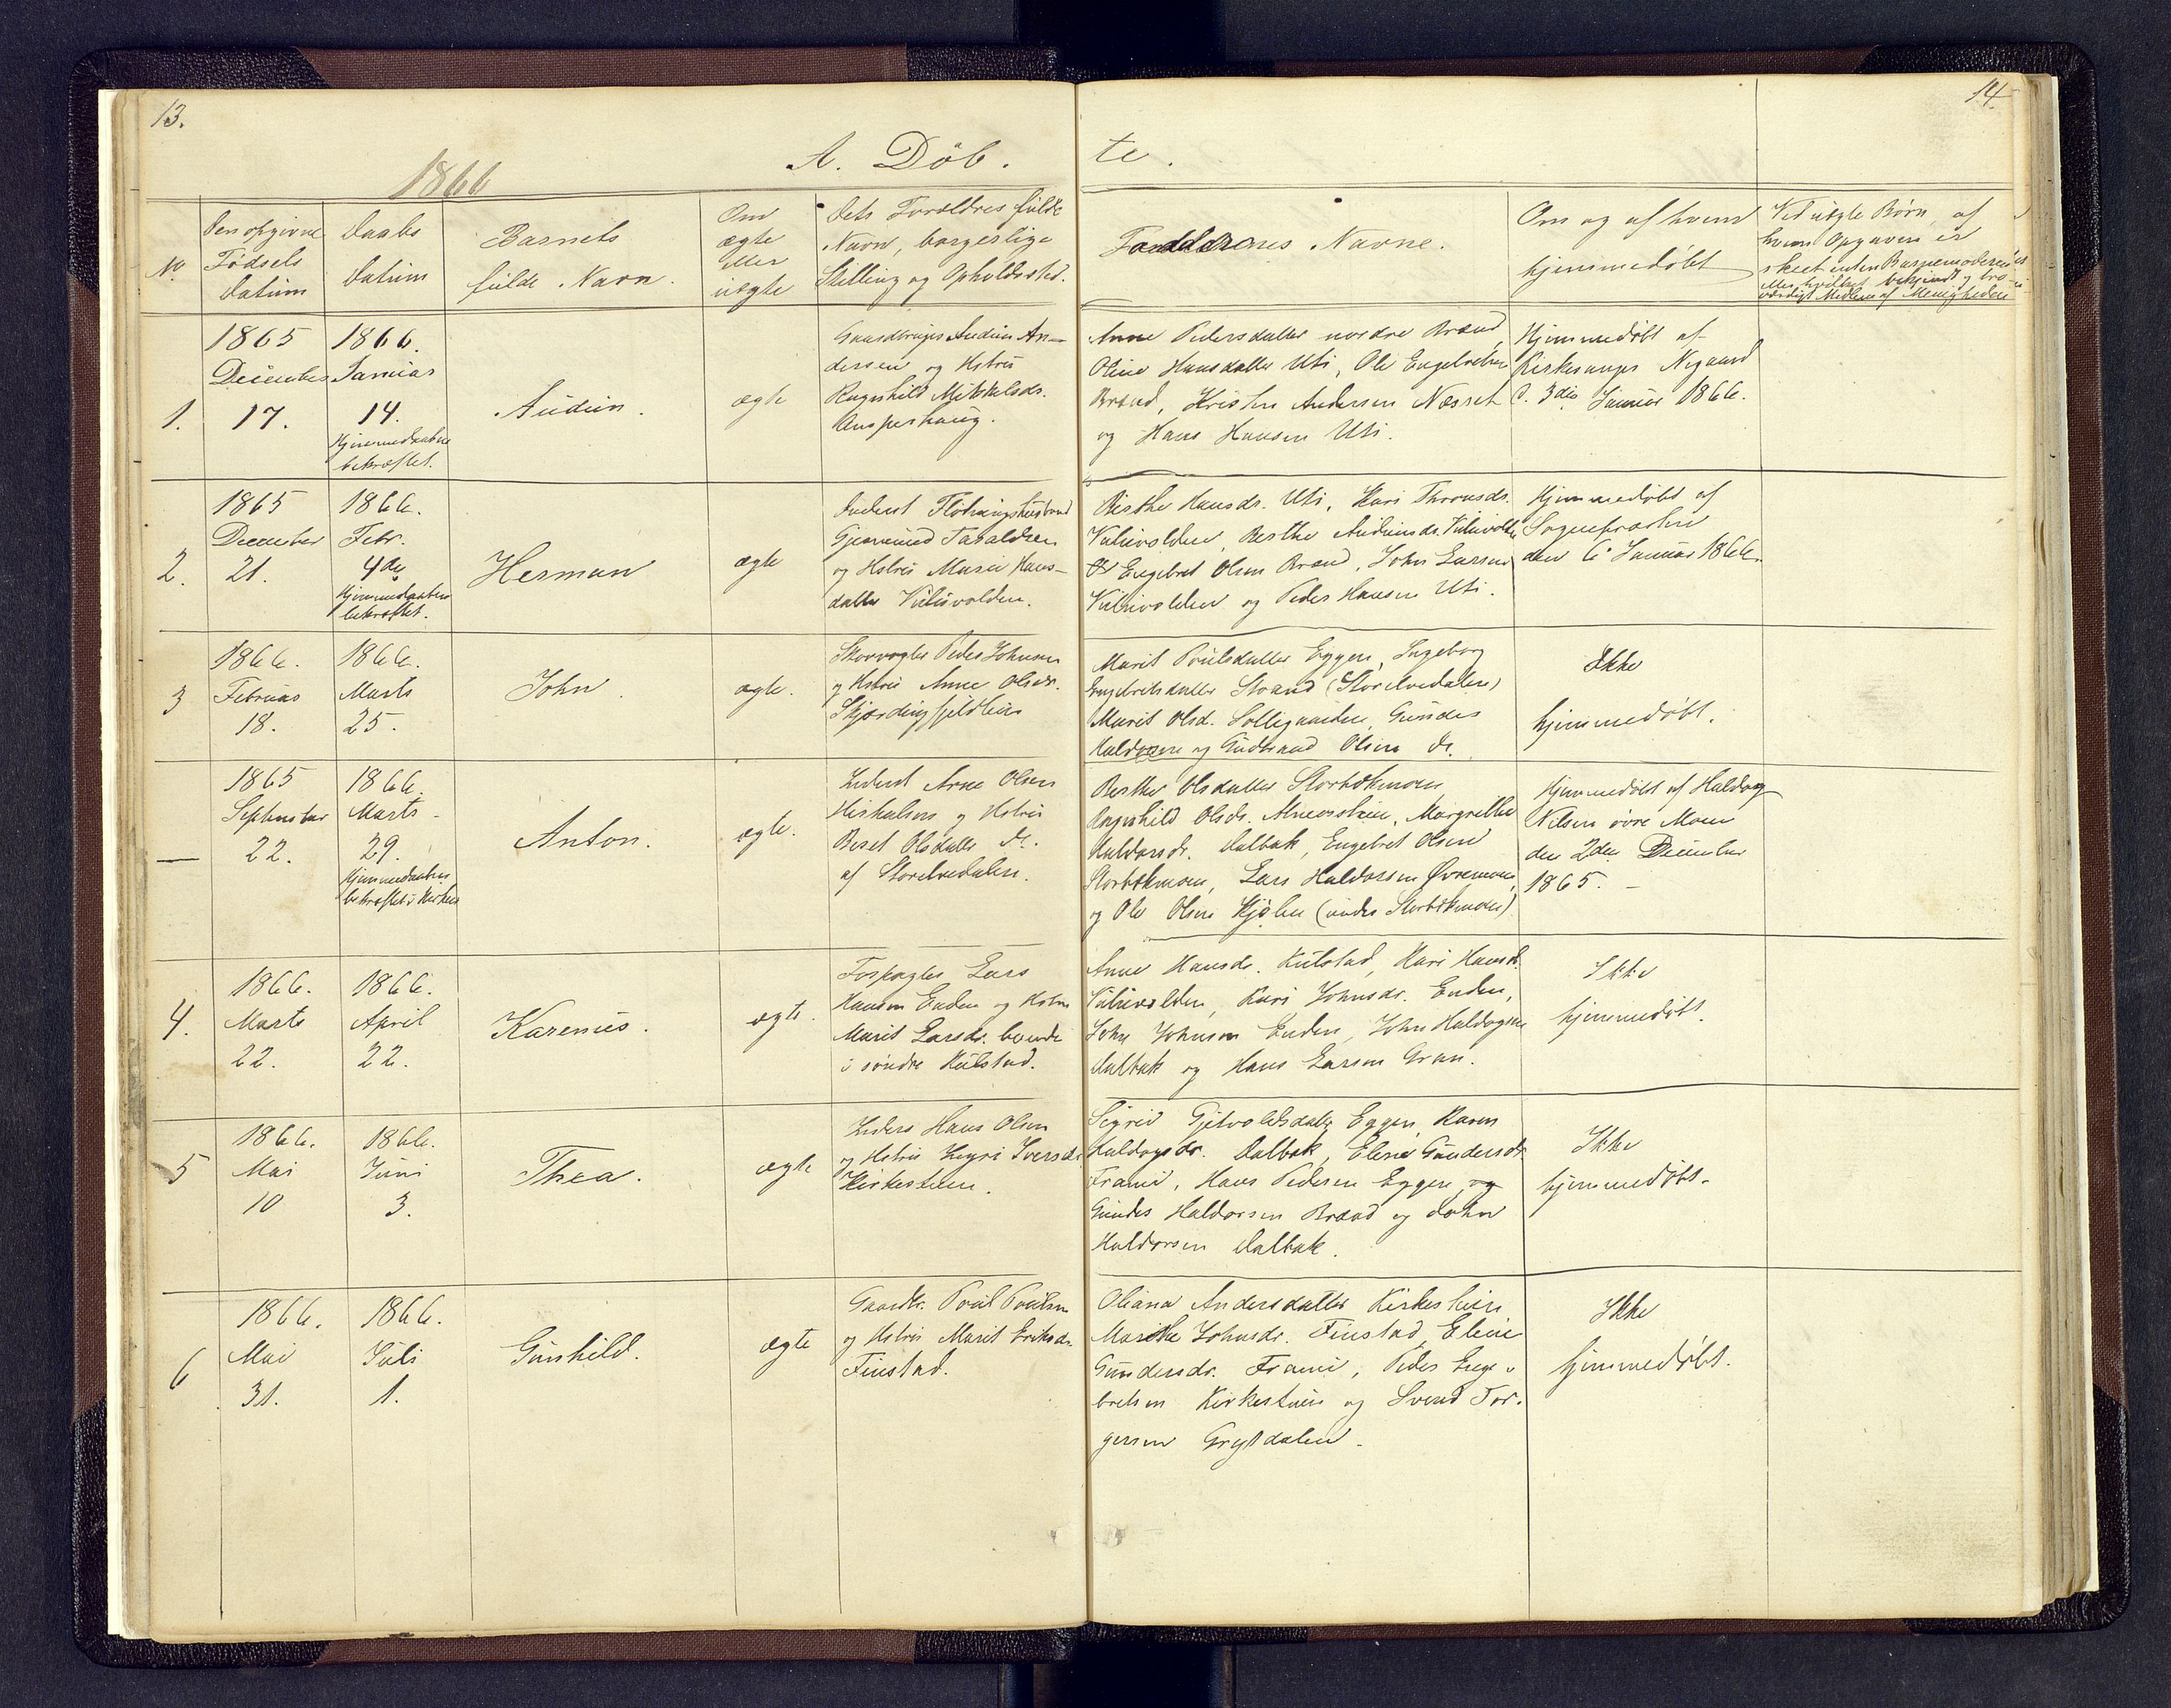 13.
14.
A. Döb.
te.
1866
No
Den opgivne
Fødsels
Datum
Daabs
Datum
Barnets
fulde Navn.
Om
ægte
eller
uægte
Dets Forældres fulde
Navn, borgerlige
Stilling og Opholdssted.
Faddernes Navne.
Om og af hvem
hjemmedøbt
Ved uægte Børn, af
hvem Opgaven er
skeet enten Barnemoderen
eller hvilket bekjendt og tro-
værdigt Medlem af Menigheden
1.
1865
December
17.
1866.
Januar
14.
Hjemmedaaben
bekræftet.
Audun.
ægte
Gaardbruger Audun An-
dersen og Hstru
Ragnhild Mikkelsdr.
Anne Pedersdatter nordre Brænd,
Oline Hansdatter Uti, Ole Engebretsen
Brænd, Kristen Andersen Næsset
og Hans Hansen Uti.
Hjemmedøbt af
Kirkesanger Nygaard
d. 3die Januar 1866.
2.
1865
December
21.
1866.
Febr.
4de
Hjemmedaaben
bekræftet.
Herman
ægte
Inderst
Gjermund Taraldsen
og Hstru Maren Hans-
datter Kulusvolden.
Berthe Hansdr. Uti, Kari
Berthe Audunsdr.
Engebret Olsen Brænd, John Larsen
og Peder Hansen Uti.
Hjemmedøbt af
Sognepræsten
den 6te Januar 1866.
3
1866.
Februar
18.
1866.
Marts
25.
John.
ægte.
Skovvogter Peder Johnsen
og Hstru Anne Olsdr.
Marit Poulsdatter Eggen, Ingeborg
Engebretsdatter Strand (Storelvedalen)
Marit Olsd. Solligaarden, Gunder
og Gudbrand Olsen do.
Ikke
hjemmedøbt.
—
1865
September
22.
1866.
Marts
29.
Hjemmedaaben
bekræftet i Kirken
Anton.
ægte.
Inderst Arne Olsen
og Hstru
Beret Olsdatter do.
af Storelvedalen.
Berthe Olsdatter Storbækmoen,
Ragnhild Olsdr. Margrethe
Haldorsdr. Dalbak, Engebret Olsen
Storbækmoen, Lars Haldorsen Øvremoen,
og Ole Olsen Kjølen (under Storbækmoen)
Hjemmedøbt af Haldor
Nilsen øvre Moen
den 2den December
1865. –
4.
1866.
Marts
22.
1866.
April
22.
Karenus.
ægte.
Forpagter Lars
Hansen Enden og Hstru
Marit Larsdr. boende
i søndre Kulstad.
Anne Hansdr. Kulstad, Kari Hansdr.
Kari Johnsdr. Enden,
John Johnsen Enden, John Haldorsen
Dalbak og Hans Larsen Gran.
Ikke
hjemmedøbt.
5
1866.
Mai
10
1866.
Juni
3.
Thea.
ægte
Inders Hans Olsen
og Hstru Ingri Iversdr.
Sigrid Eggen, Karen
Haldorsdr. Dalbak, Eline Gundersdr.
Frami, Hans Pedersen Eggen, og
Gunder Haldorsen Brænd og John
Haldorsen Dalbak.
Ikke
hjemmedøbt.
6
1866.
Mai
31.
1866.
Juli
1.
Gunhild.
ægte
Gaardbr. Poul Poulsen
og Hstru Marit Eriksdr.
Finstad.
Oliana Andersdatter
Marthe Johnsdr. Finstad, Eline
Gundersdr. Frami, Peder Enge-
bretsen og Svend Tor-
gersen Grytdalen.
Ikke
hjemmedøbt.